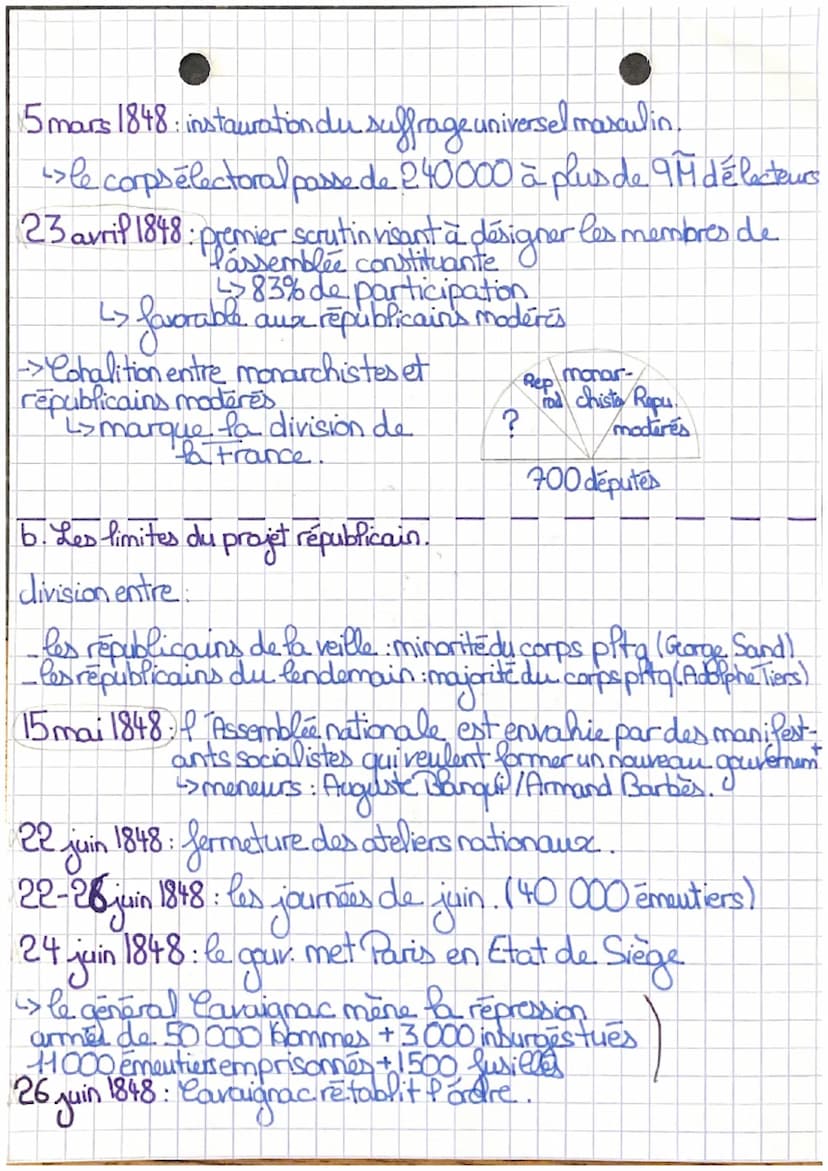 5 mars 1848 : instauration du suffrage universel masculin.
↳ le corps électoral passe de 240000 à plus de 9M d'électeurs
23 avril 1848 : premier scrutin visant à désigner les membres de
l'assemblée constituante
↳ 83% de participation
↳ favorable aux républicains modérés
→ Cohalition entre monarchistes et
républicains modérés
↳ marque la division de
la France.
?
Rep rad
monar-
chiste
Repu.
modérés
700 députés
b. Les limites du projet républicain.
division entre :
- les républicains de la veille : minorité du corps pltq (George Sand)
- les républicains du lendemain : majorité du corps pltq (Adolphe Tiers)
15 mai 1848 : l'Assemblée nationale est envahie par des manifest-
ants socialistes qui veulent former un nouveau gouvernemt
↳ meneurs : Auguste Blanqui / Armand Barbès.
22 juin 1848 : fermeture des ateliers nationaux.
22-26 juin 1848 : les journées de juin. (40 000 émeutiers)
24 juin 1848 : le gouv. met Paris en Etat de Siège
↳ le général Cavaignac mène la répression
armél de 50 000 hommes + 3 000 insurgés tués
11 000 émeutiers emprisonnés + 1500 fusillés
26 juin 1848 : Cavaignac rétablit l'ordre.